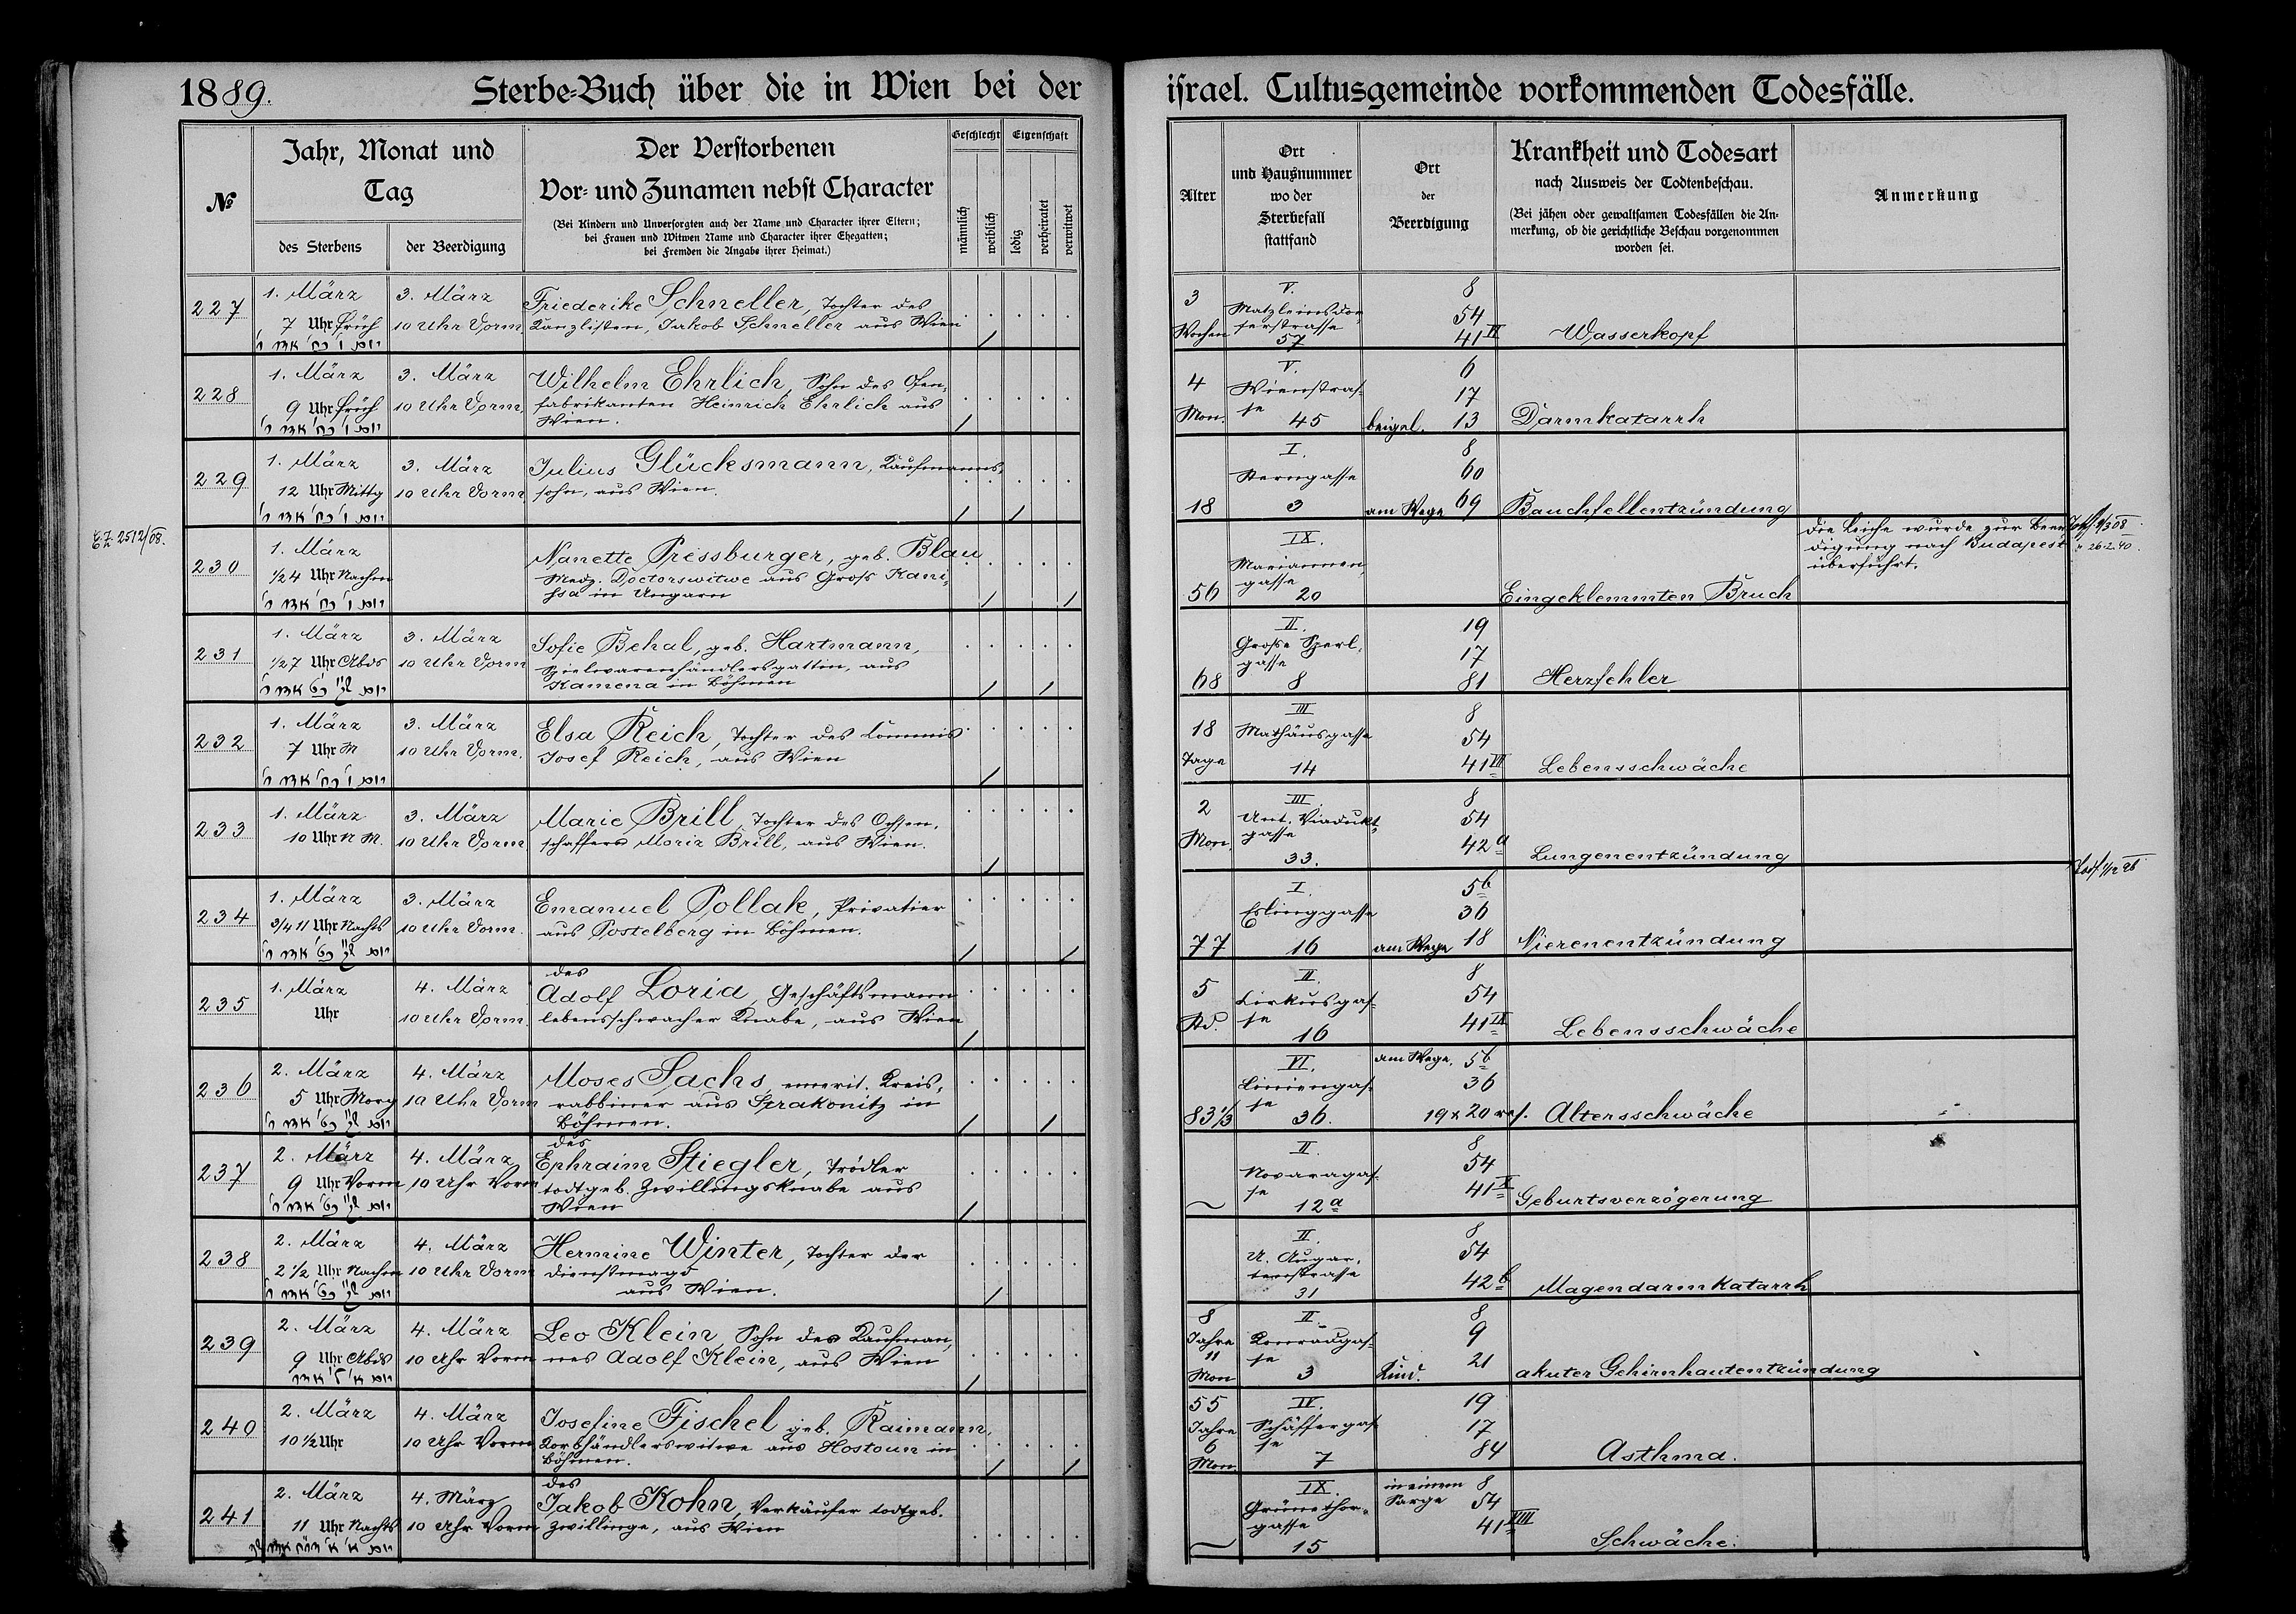 1889.
Sterbe-Buch über die in Wien bei der
israel. Cultusgemeinde vorkommenden Todesfälle.
№
Jahr, Monat und
Tag
des Sterbens
der Beerdigung
Der Verstorbenen
Vor- und Zunamen nebst Character
(Bei Kindern und Unversorgten auch der Name und Character ihrer Eltern;
bei Frauen und Witwen Name und Character ihrer Ehegatten;
bei Fremden die Angabe ihrer Heimat.)
Geschlecht
männlich
weiblich
Eigenschaft
ledig
verheiratet
verwitwet
Alter
Ort
und Hausnummer
wo der
Sterbefall
stattfand
Ort
der
Beerdigung
Krankheit und Todesart
nach Ausweis der Todtenbeschau.
(Bei jähen oder gewaltsamen Todesfällen die An-
merkung, ob die gerichtliche Beschau vorgenommen
worden sei.
Anmerkung
227
1. März
7 Uhr früh
3. März
10 Uhr Vorm.
Friederike Schneller, Tochter des
Kanzlisten, Jakob Schneller aus Wien
3
Wochen
V.
Matzleinsdor-
ferstrasse
57
8
54
41 II
Wasserkopf
228
1. März
9 Uhr früh
3. März
10 Uhr Vorm.
Wilhelm Ehrlich, Sohn des Ofen-
fabrikanten Heinrich Ehrlich aus
Wien.
4
Mon.
V.
Wienstras-
se
45
beigel.
6
17
13
Darmkatarrh
229
1. März
12 Uhr Mittg
3. März
10 Uhr Vorm
Julius Glücksmann, Kaufmanns-
sohn, aus Wien.
18
I.
Sterngasse
3
am Wege
8
60
69
Bauchfellentzündung
2512/08.
230
1. März
1/2 4 Uhr Nachm
Nanette Pressburger, geb. Blau
Medz. Doctorswitwe aus Gross Kani-
sza in Ungarn
56
IX.
Mariannen-
gasse
20
Eingeklemmten Bruch
Die Leiche wurde zur Beer-
digung nach Budapest
überführt.
26.2.40.
231
1. März
1/2 7 Uhr Abds
3. März
10 Uhr Vorm
Sofie Behal, geb. Hartmann,
Spielwarenhändlersgattin, aus
Kamena in Böhmen
68
II.
Grosse Sperl-
gasse
8
19
17
81
Herzfehler
232
1. März
7 Uhr M
3. März
10 Uhr Vorm.
Elsa Reich, Tochter des Commis
Josef Reich, aus Wien
18
Tage
III
Mathäusgasse
14
8
54
41 III
Lebensschwäche
233
1. März
10 Uhr N M.
3. März
10 Uhr Vorm
Marie Brill, Tochter des Ochsen-
schaffers Moriz Brill, aus Wien.
2
Mon.
III.
Unt. Viadukt-
gasse
33.
8
54
42 a
Lungenentzündung
234
1. März
3/4 11 Uhr Nachts
3. März
10 Uhr Vorm.
Emanuel Pollak, Privatier
aus Postelberg in Böhmen.
77
I.
Eslinggasse
16
am Wege
5b
36
18
Nierenentzündung
235
1. März
Uhr
4. März
10 Uhr Vorm.
des
Adolf Loria, Geschäftsmann
lebensschwacher Knabe, aus Wien
5
Std.
II.
Cirkusgas-
se
16
8
54
41 IX
Lebensschwäche
236
2. März
5 Uhr Morg
4. März
10 Uhr Vorm
Moses Sachs, emerit. Kreis-
rabbiner aus Strakonitz in
Böhmen.
83 1/3
VI.
Liniengas-
se
36.
am Wege.
5b
36
19 x 20 res.
Altersschwäche
237
2. März
9 Uhr Vorm
4. März
10 Uhr Vorm
des
Ephraim Stiegler, Trödler
todtgeb. Zwillingsknabe aus
Wien
II.
Novaragas-
se
12 a
8
54
41 X
Geburtsverzögerung
238
2. März
2 1/2 Uhr Nachm
4. März
10 Uhr Vorm
Hermine Winter, Tochter der
Dienstmagd
aus Wien.
II.
U. Augar-
tenstrasse
31
8
54
42 b
Magendarmkatarrh
239
2. März
9 Uhr Abds
4. März
10 Uhr Vorm
Leo Klein, Sohn des Kaufman-
nes Adolf Klein, aus Wien
8
Jahre
11
Mon
II.
Konradgas-
se
3
Kind.
8
9
21
akuter Gehirnhautentzündung
240
2. März
10 1/2 Uhr
4. März
10 Uhr Vorm
Josefine Fischel geb. Raimann,
Korbhändlerswitwe aus Hostoun in
Böhmen.
55
Jahre
6
Mon
IV.
Schäffergas-
se
7
19
17
84
Asthma.
241
2. März
11 Uhr Nachts
4. März
10 Uhr Vorm
des
Jakob Kohn, Verkäufer todtgeb.
Zwillinge, aus Wien
IX.
Grünethor-
gasse
15
in einem
Sarge
8
54
41 VIII
Schwäche.